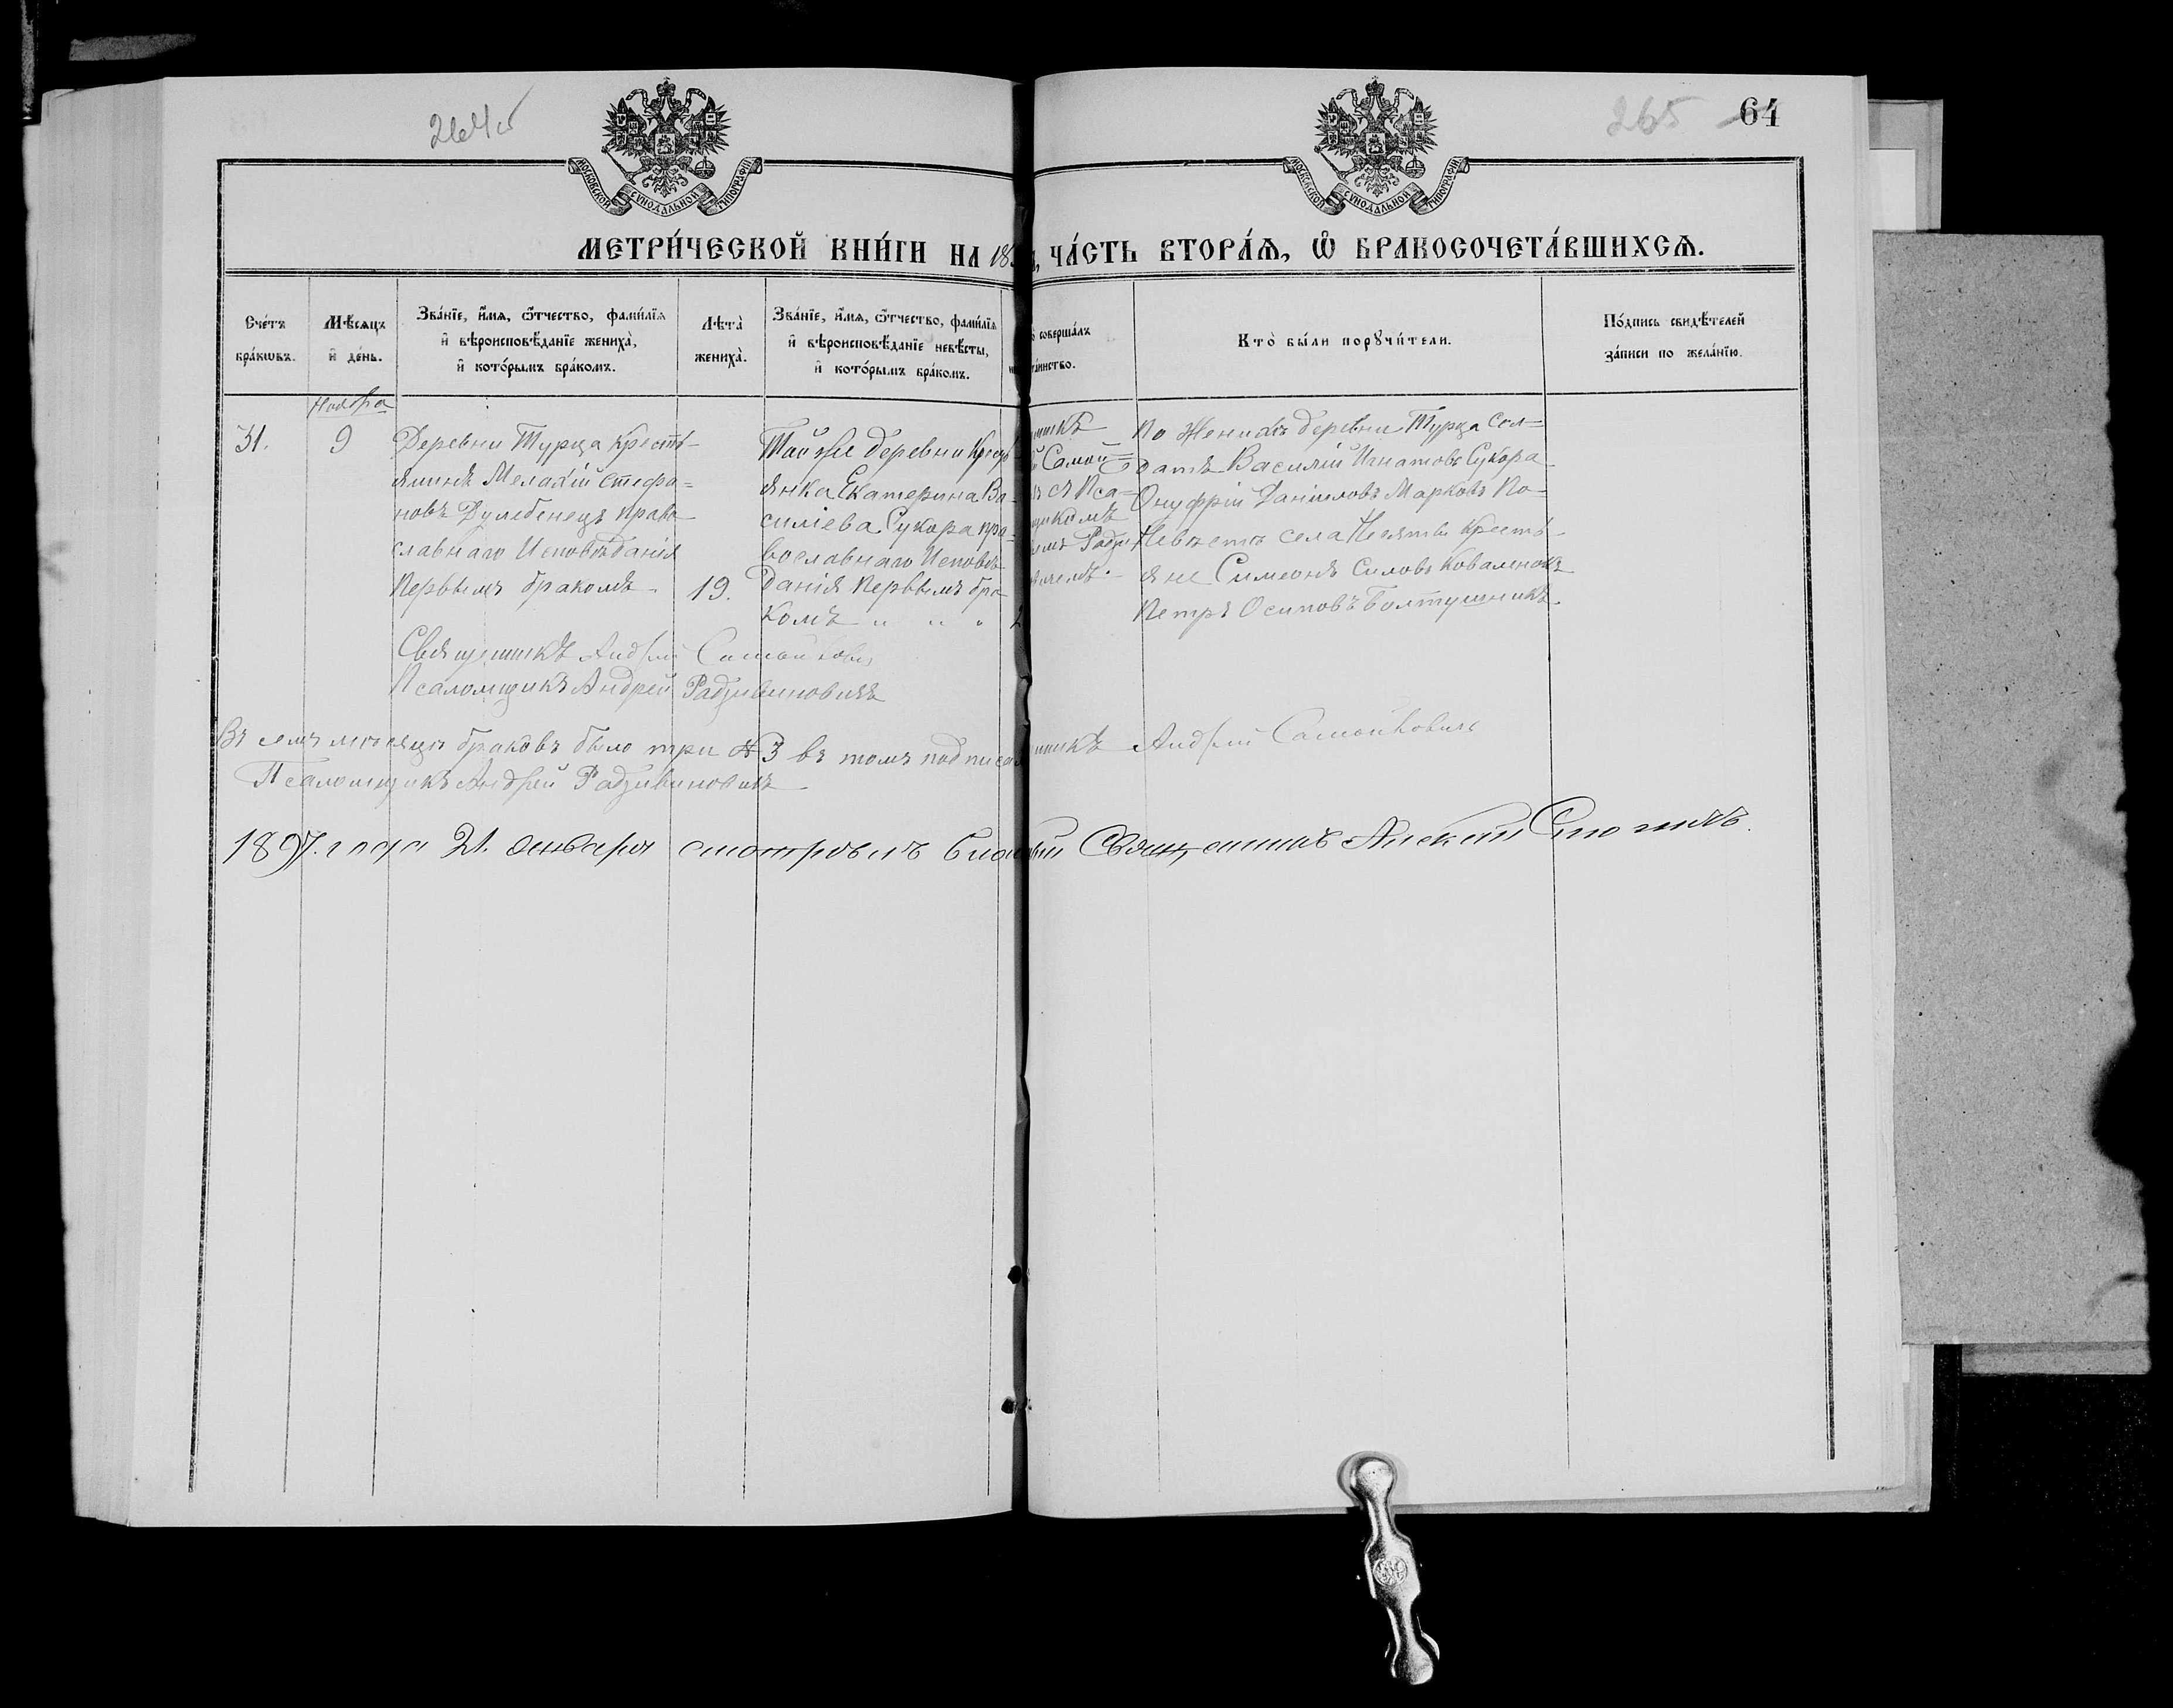 264 об
265 64
МОСКОВСКОЙ СУНОДАЛЬНОЙ ТИПОГРАФІИ
МОСКОВСКОЙ СУНОДАЛЬНОЙ ТИПОГРАФІИ
МЕТРИ́ЧЕСКОЙ КНИ́ГИ НА 18 ЧА́СТЬ ВТОРА́Ѧ, Ѽ БРАКОСОЧЕТА́ВШИХСѦ.
Сче́тъ
бра́кѡвъ.
Мѣ́сяцъ
и҆ де́нь.
Зва́нїе, и҆́мя, ѻ҆́тчество, фами́лїя
и҆ вѣроисповѣ́данїе жениха̀,
и҆ кото́рымъ бра́комъ.
Лѣта̀
жениха̀.
Зва́нїе, и҆́мя, ѻ҆́тчество, фами́лїя
и҆ вѣроисповѣ́данїе невѣ́сты,
и҆ кото́рымъ бра́комъ.
соверша́лъ
та́инство.
Кто̀ бы́ли порꙋчи́тели.
По́дпись свидѣ́телей
за́писи по жела́нїю.
Ноября
31.
9
Деревни Турца Кресть-
янинъ Мелахій Стефа=
новъ Дулебенецъ право-
славнаго Исповѣданія
первымъ бракомъ.
19.
Той же деревни Кресть
янка Екатерина Ва-
силіева Сукора пра-
вославнаго Исповѣ
данія первымъ бра-
комъ " " "
Самой=
съ Пса=
щикомъ
Радзи
По Женихѣ деревни Турца Сол=
датъ Василій Игнатовъ Сукора
Онуфрій Даніиловъ Марковъ По=
Невѣстѣ села кресть-
яне Симеонъ Силовъ Коваленокъ
Петръ Осиповъ Болтушникъ.
Священникъ Андрей Самойловичъ
Псаломщикъ Андрей Радзивиновичъ
Въ семъ мѣсяцѣ браковъ было три № 3 въ томъ подписа Андрей Самойловичъ
Псаломщикъ Андрей Радзивиновичъ
1897. года 21. Января смотрѣлъ Священникъ Алексій